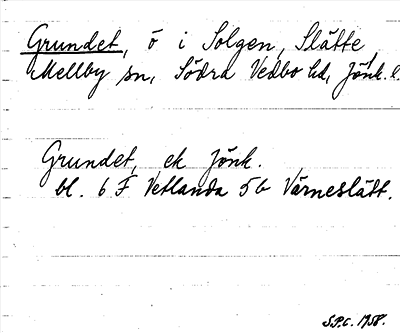 Grundet, ö i Solgen, Slätte
Mellby sn, Södra Vedbo hd, Jönk. l.
Grundet, ek Jönk.
bl. 6 F Vetlanda 5 b Värneslätt.
S.P.C. 1958.